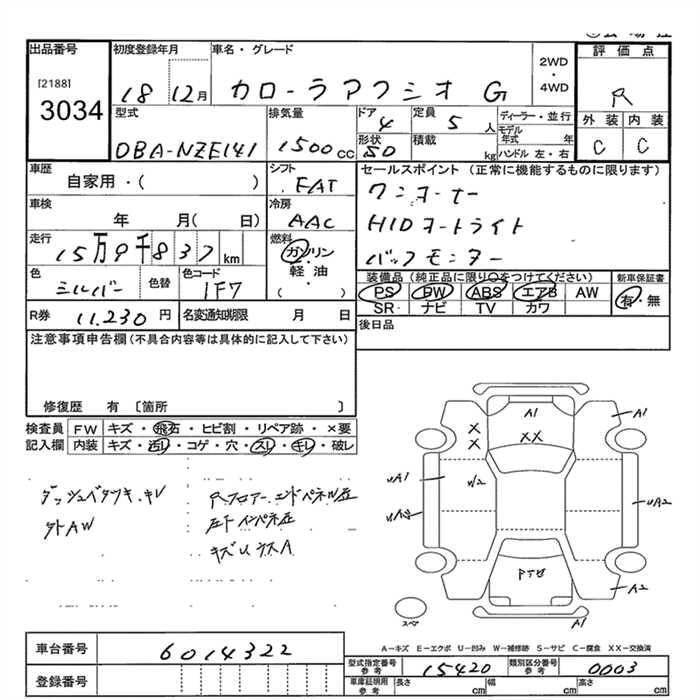 出品番号
[2188]
3034
初度登録年月
18 12月
車名・グレード
カローラアクシオ G
2WD
・
4WD
評価点
R
外装 内装
C C
型式
DBA-NZE141
排気量
1500cc
ドア
4
形状
SD
定員
5人
積載
kg
ディーラー・並行
モデル年式 年
ハンドル 左・右
車歴
自家用・( )
シフト
FAT
車検
年 月( 日)
冷房
AAC
走行
15万9千837km
燃料
ガソリン
軽油
( ・ )
色
シルバー
色替
色コード
1F7
R券
11.230円
名変通知期限 月 日
セールスポイント(正常に機能するものに限ります)
ワンオーナー
HIDオートライト
バックモニター
装備品(純正品に限り○をつけてください)
新車保証書
PS PW ABS エアB AW
有・無
SR ナビ TV カワ
後日品
注意事項申告欄(不具合内容等は具体的に記入して下さい)
修復歴 有 〔箇所 〕
検査員
記入欄
FW キズ・飛石・ヒビ割・リペア跡・×要
内装 キズ・汚レ・コゲ・穴・スレ・キレ・破レ
ダッシュベタツキ.キレ
外AW
R.フロアー.エンドパネル歪
左下インパネ歪
A1
A1
X
X
XX
uA1
W2
uA2
A2
A1
スペア
車台番号
6014322
登録番号
A-キズ E-エクボ U-凹み W-補修跡 S-サビ C-腐食 XX-交換済
型式指定番号
参考
15420
類別区分番号
参考
0003
車庫証明用
参考
長さ cm
幅 cm
高さ cm